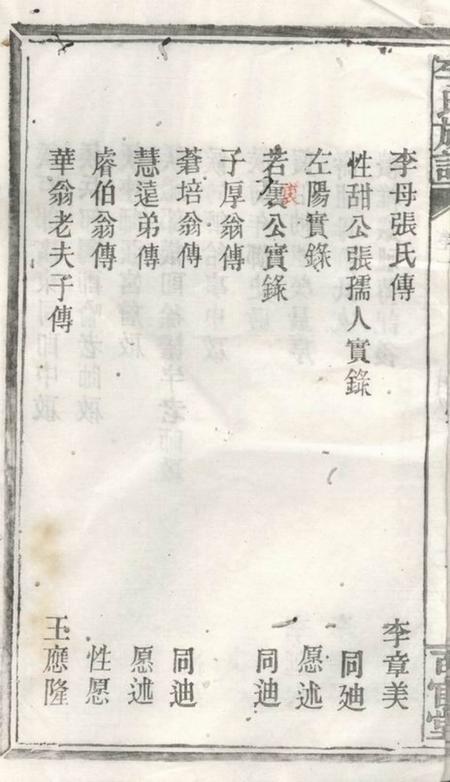 李氏族譜
李母張氏傳 李章美
性甜公張孺人實錄 同廸
左陽實錄 愿述
若裏公實錄 同迪
裏
子厚翁傳
蒼培翁傳 同迪
慧遠弟傳 愿述
睿伯翁傳 性愿
華翁老夫子傳 王應隆